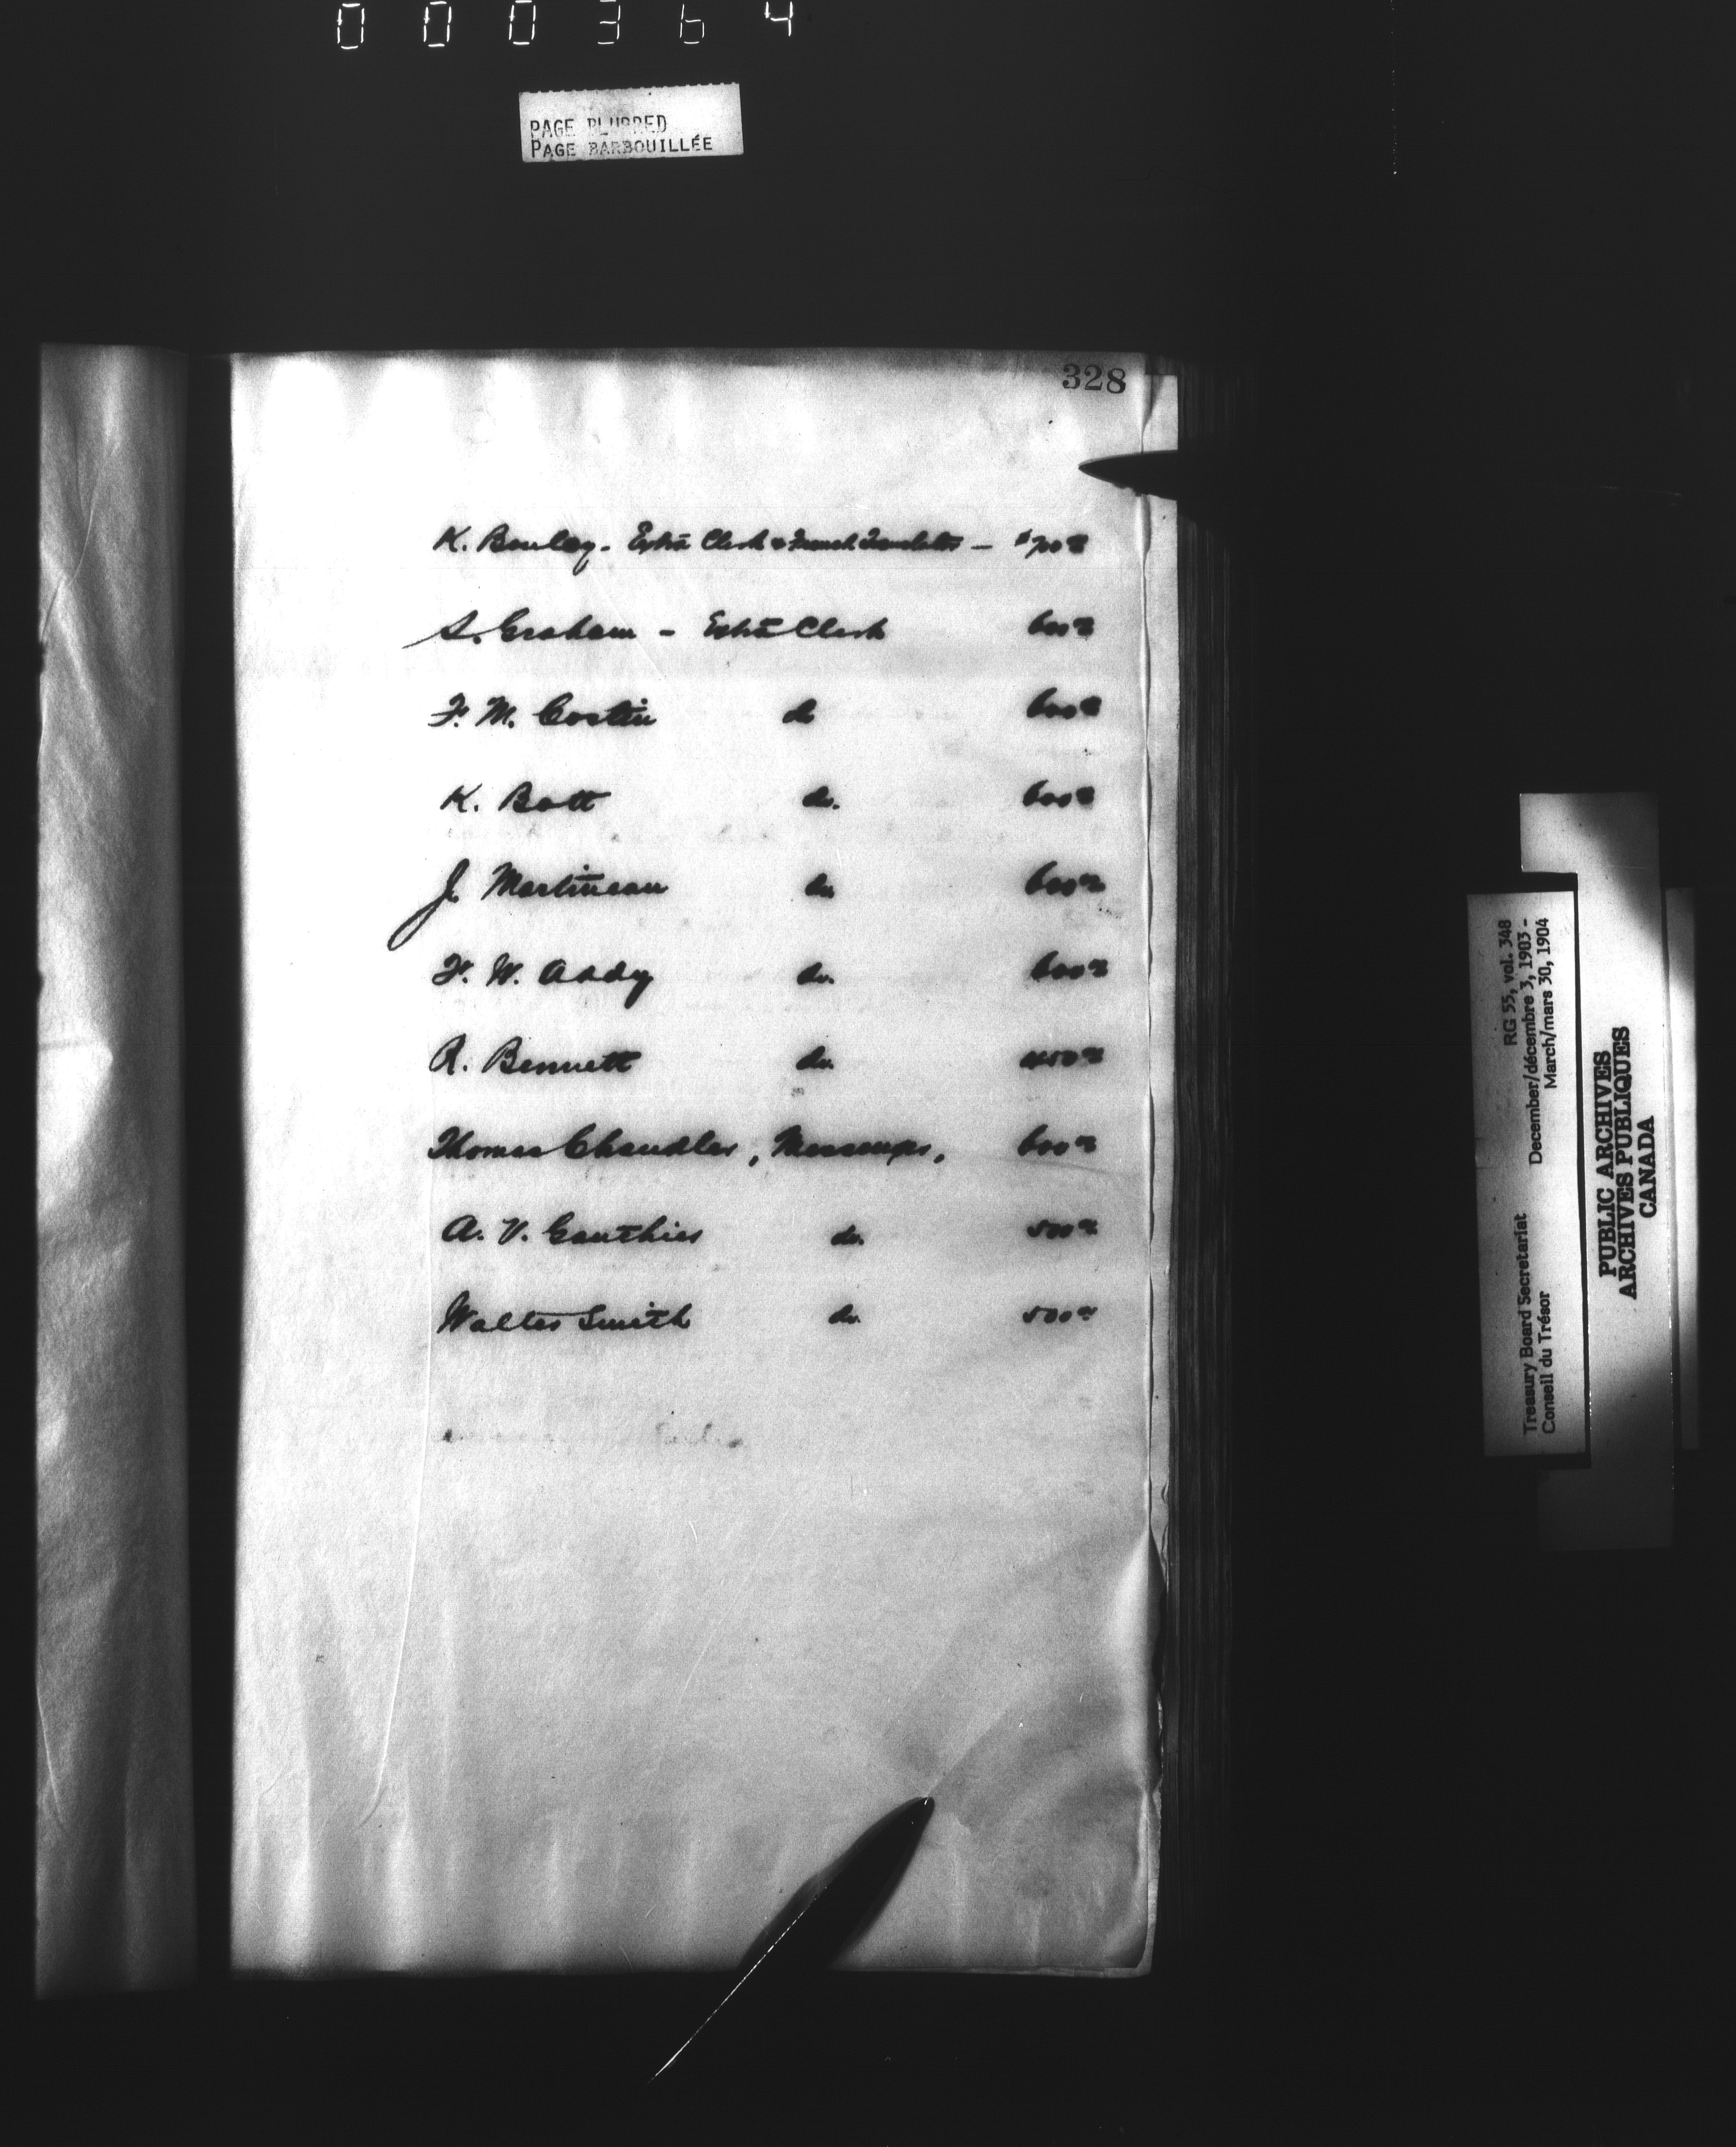 000364
PAGE BLURRED
PAGE BARBOUILLÉE
328
K. Bouley - Extra Clerk & French Translator - $700 00
S. Graham - Extra Clerk 600 00
F. M. Costin do 600 00
K. Bott do. 600 00
J. Martineau do. 600 00
F. W. Addy do. 600 00
R. Bennett do. 450 00
Thomas Chandler, Messenger, 600 00
A. V. Gauthier do. 500 00
Walter Smith do. 500 00
Treasury Board Secretariat RG 55, vol. 348
Conseil du Trésor December/décembre 3, 1903 -
March/mars 30, 1904
PUBLIC ARCHIVES
ARCHIVES PUBLIQUES
CANADA